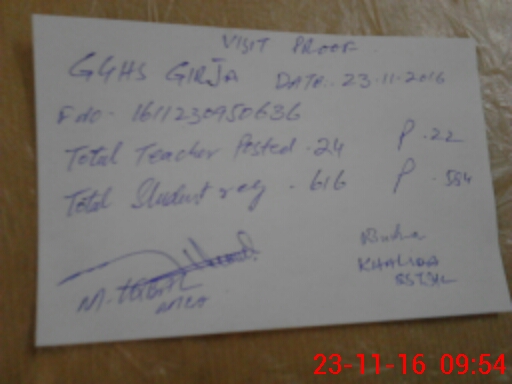 VISIT PROOF
GGHS GIRJA DATE:. 23.11.2016
F no - 1611230950636
Total Teacher Posted . 24 P . 22
Total Student reg . 616 P . 554
M. IQBAL
KHALIDA
23-11-16 09:54